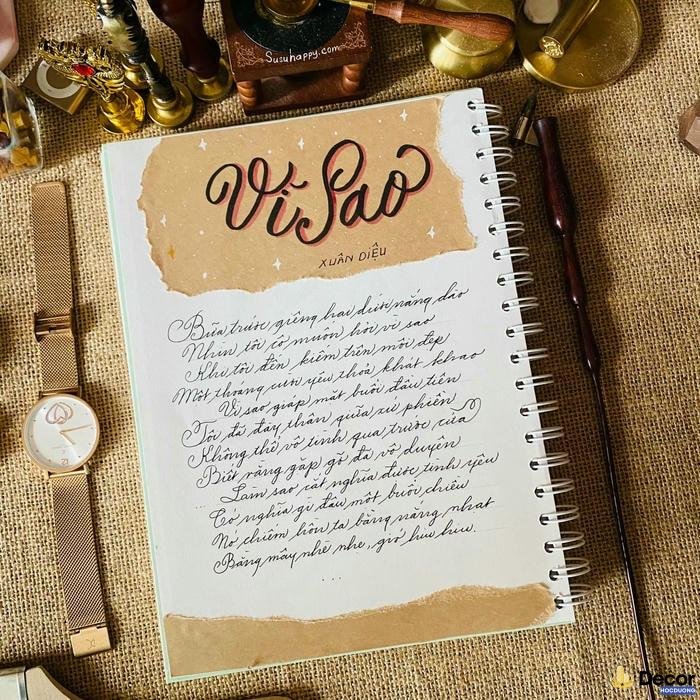 Susuhappy.com
Vì Sao
XUÂN DIỆU
Bữa trước giêng hai dưới nắng đào
Nhìn tôi cô muốn hỏi vì sao
Khi tôi đến kiếm trên môi đẹp
Một thoáng cười yêu thoả khát khao
Vì sao giáp mặt buổi đầu tiên
Tôi đã đày thân giữa xứ phiền
Không thể vô tình qua trước cửa
Biết rằng gặp gỡ đã vô duyên
... Làm sao cắt nghĩa được tình yêu
Có nghĩa gì đâu một buổi chiều
Nó chiếm hồn ta bằng nắng nhạt
Bằng mây nhè nhẹ, gió hiu hiu.
...
Decor
HOCDUONG